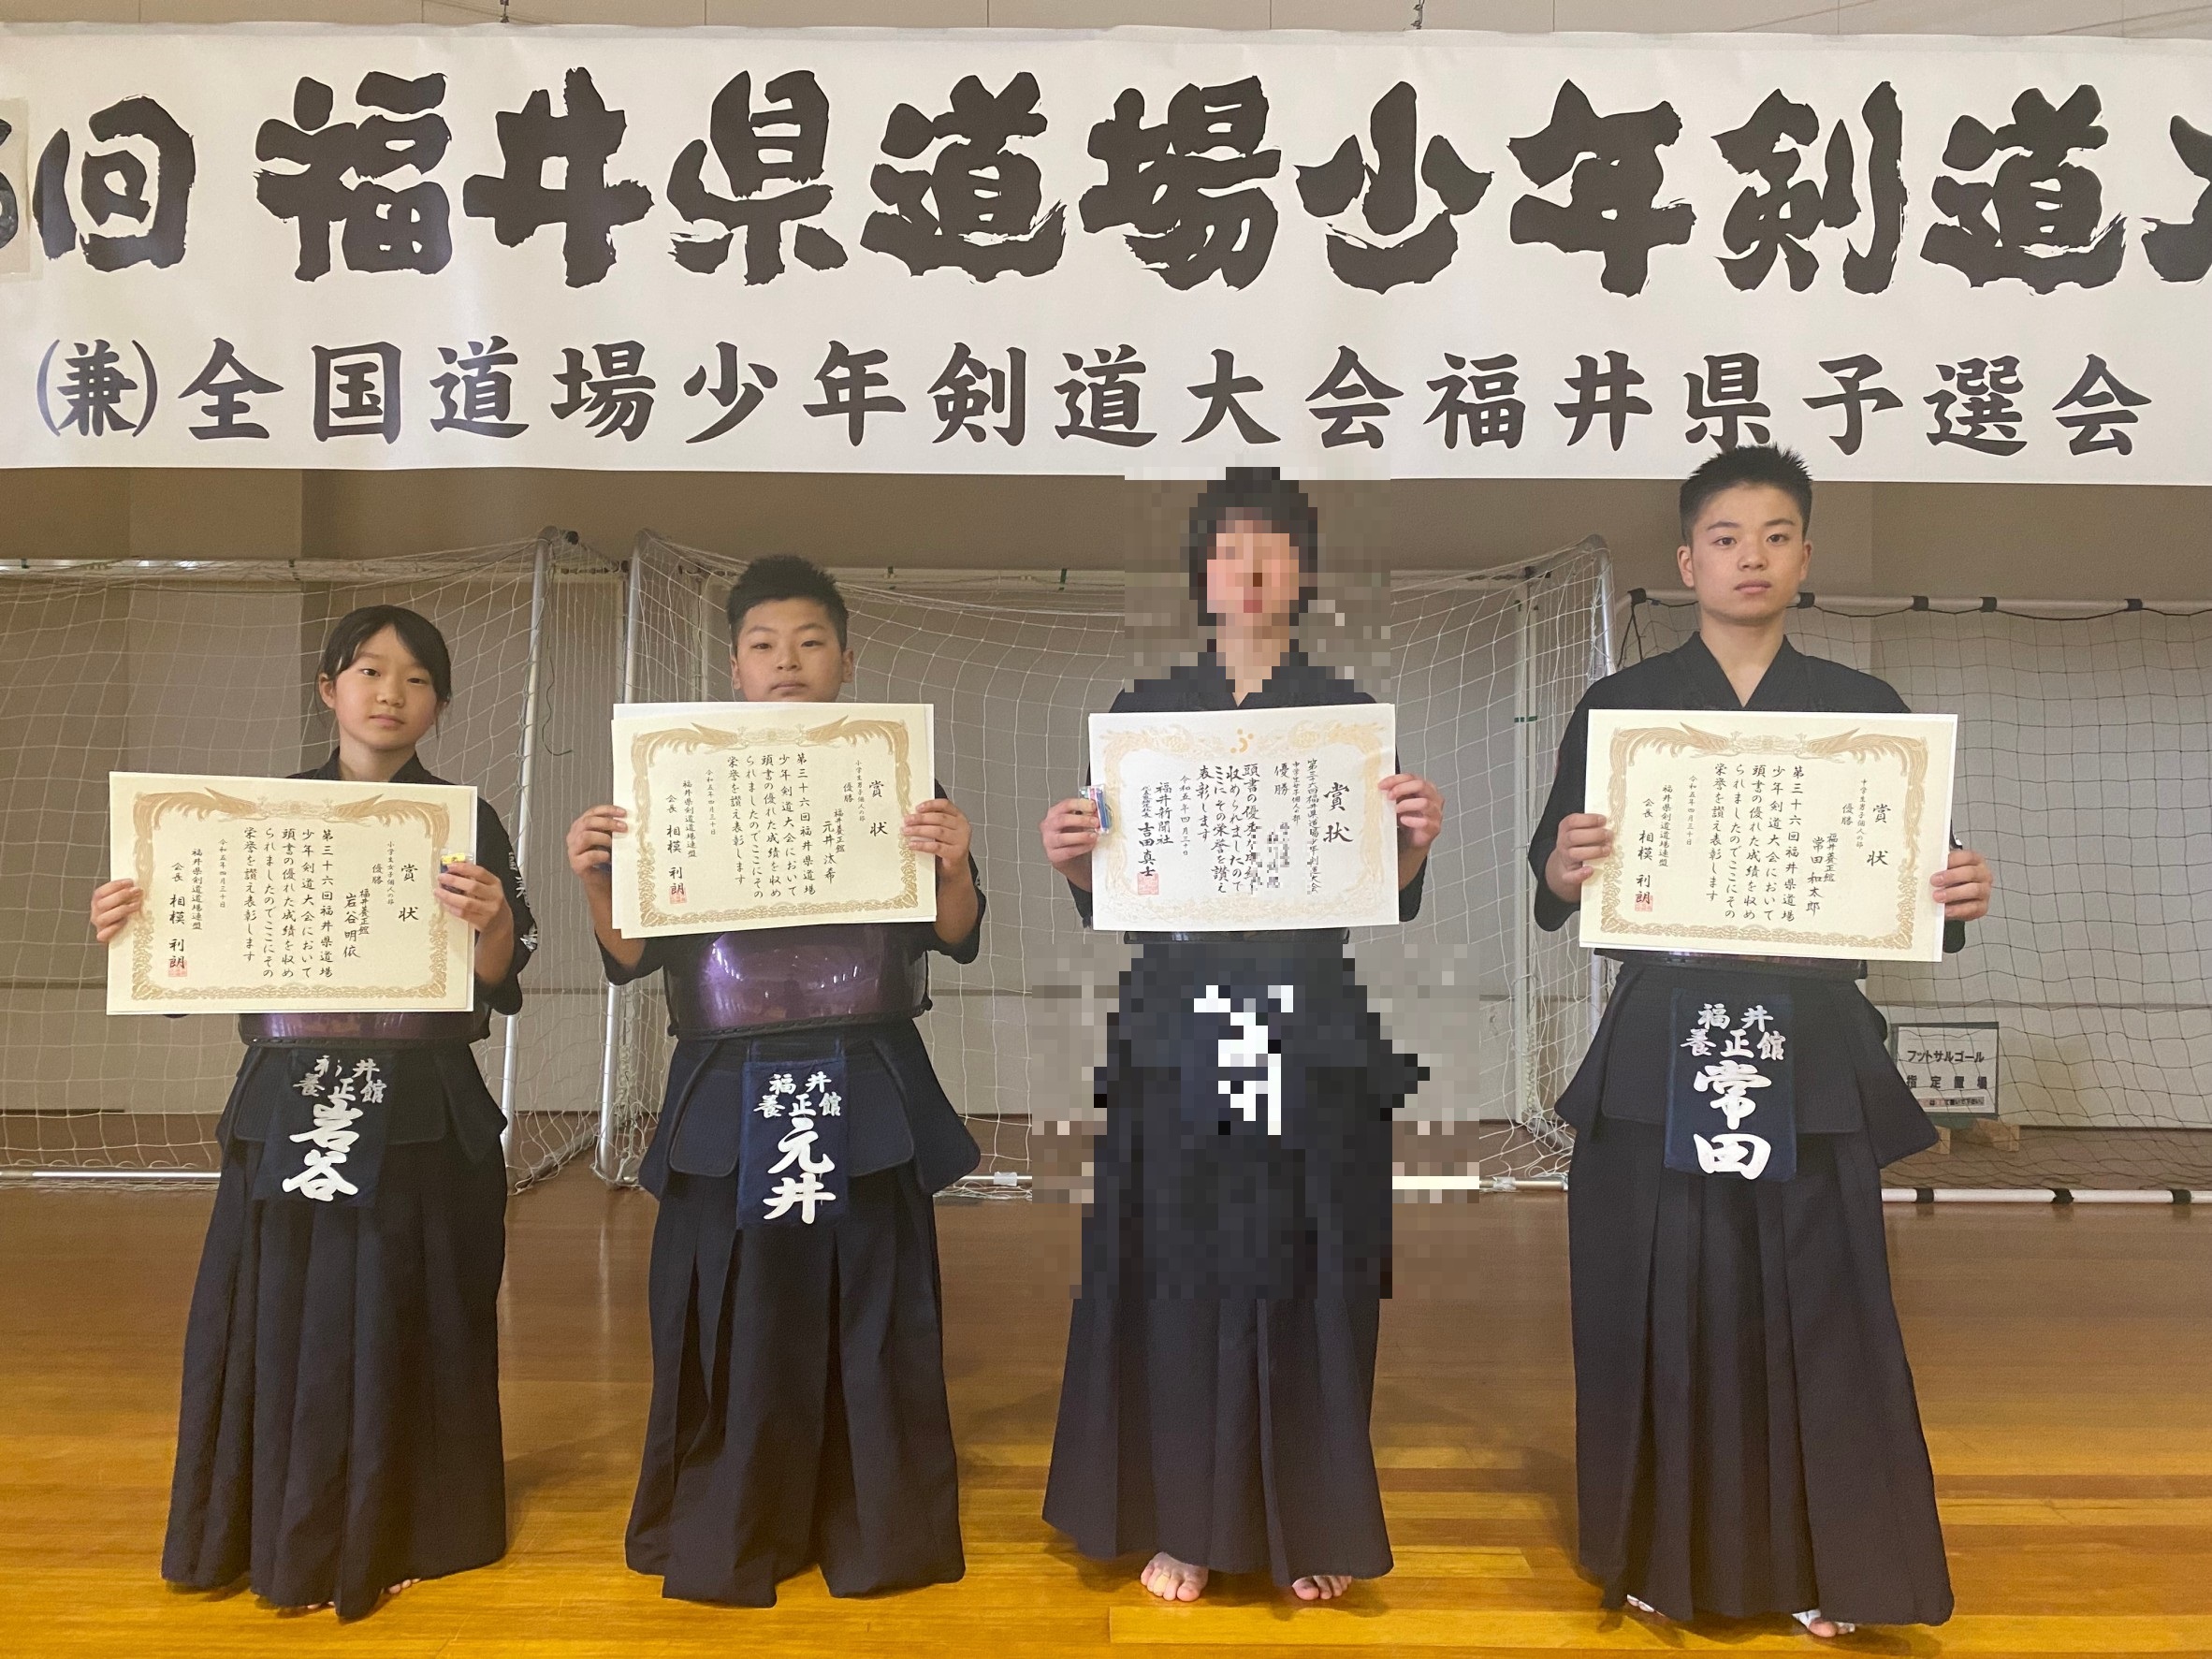 回 福井県道場少年剣道
㈱全国道場少年剣道大会福井県予選会
賞状
小学生女子個人の部
優勝
福井養正館
岩谷明依
第三十六回福井県道場
少年剣道大会において
頭書の優れた成績を収め
られましたのでここにその
栄誉を讃え表彰します
令和五年四月三十日
福井県剣道道場連盟
会長 相模 利朗
賞状
小学生男子個人の部
優勝
福井養正館
元井汰希
第三十六回福井県道場
少年剣道大会において
頭書の優れた成績を収め
られましたのでここにその
栄誉を讃え表彰します
令和五年四月三十日
福井県剣道道場連盟
会長 相模 利朗
賞状
第三十六回福井県道場少年剣道大会
中学生女子個人の部
優勝
頭書の優秀な成績を
収められましたので
ここにその栄誉を讃え
表彰します
令和五年四月三十日
福井新聞社
吉田真士
賞状
中学生男子個人の部
優勝
福井養正館
常田和太郎
第三十六回福井県道場
少年剣道大会において
頭書の優れた成績を収め
られましたのでここにその
栄誉を讃え表彰します
令和五年四月三十日
福井県剣道道場連盟
会長 相模 利朗
井
養正館
岩谷
福井
養正館
元井
福井
養正館
常田
フットサルゴール
指定置場